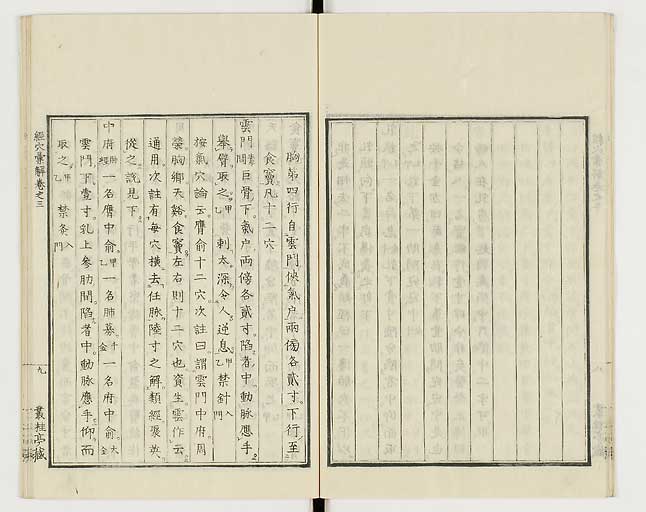 胸第四行自雲門俠氣户兩傍各貳寸下行至
食竇凡十二穴
雲門 巨骨下氣户兩傍各貳寸陷者中動脉應手
擧臂取之甲乙 刺太深令人逆息甲乙 禁針入門
按氣穴論云膺俞十二穴次註曰謂雲門中府周
榮胸鄉天谿食竇左右則十二穴也資生雲作云
通用次註有每穴橫去任脉陸寸之解類經張英
從之説見下
中府 一名膺中俞甲乙 一名肺募千金 一名府中俞大全
雲門下壹寸乳上參肋間陷者中動脉應手仰而
取之甲乙 禁灸入門
經穴彙解卷之三
九
叢桂亭藏